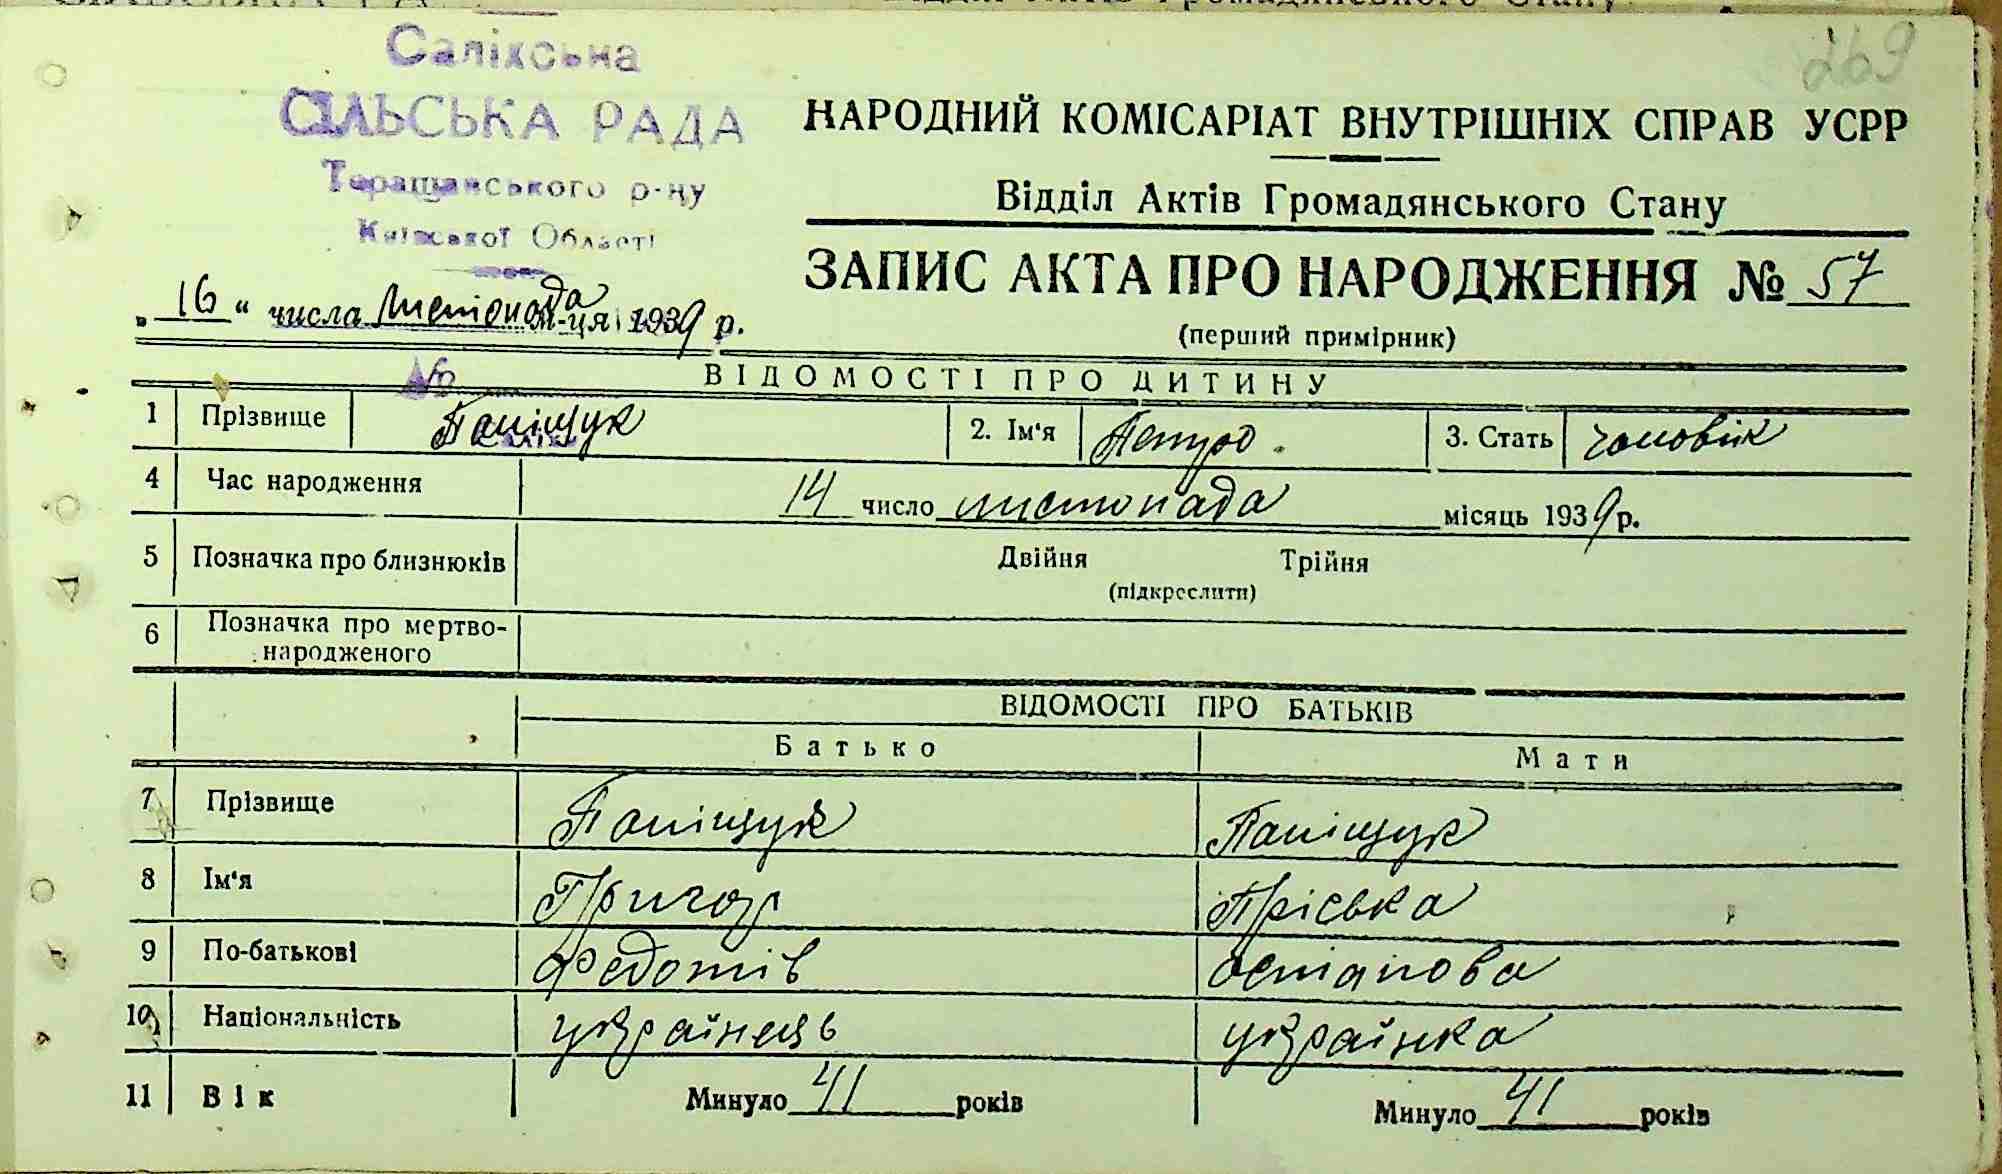 269
Саліхська
СІЛЬСЬКА РАДА
Таращанського р-ну
Київської Області
НАРОДНИЙ КОМІСАРІАТ ВНУТРІШНІХ СПРАВ УСРР
Відділ Актів Громадянського Стану
ЗАПИС АКТА ПРО НАРОДЖЕННЯ № 57
(перший примірник)
„16“ числа листопада м-ця 1939 р.
ВІДОМОСТІ ПРО ДИТИНУ
1 Прізвище Паніщук 2. Ім'я Петро. 3. Стать чоловік
4 Час народження 14 число листопада місяць 1939 р.
5 Позначка про близнюків Двійня Трійня
(підкреслити)
6 Позначка про мертво-
народженого
ВІДОМОСТІ ПРО БАТЬКІВ
Батько Мати
7 Прізвище Паніщук Паніщук
8 Ім'я Григор Пріська
9 По-батькові Федотів Остапова
10 Національність українець українка
11 Вік Минуло 41 років Минуло 41 років